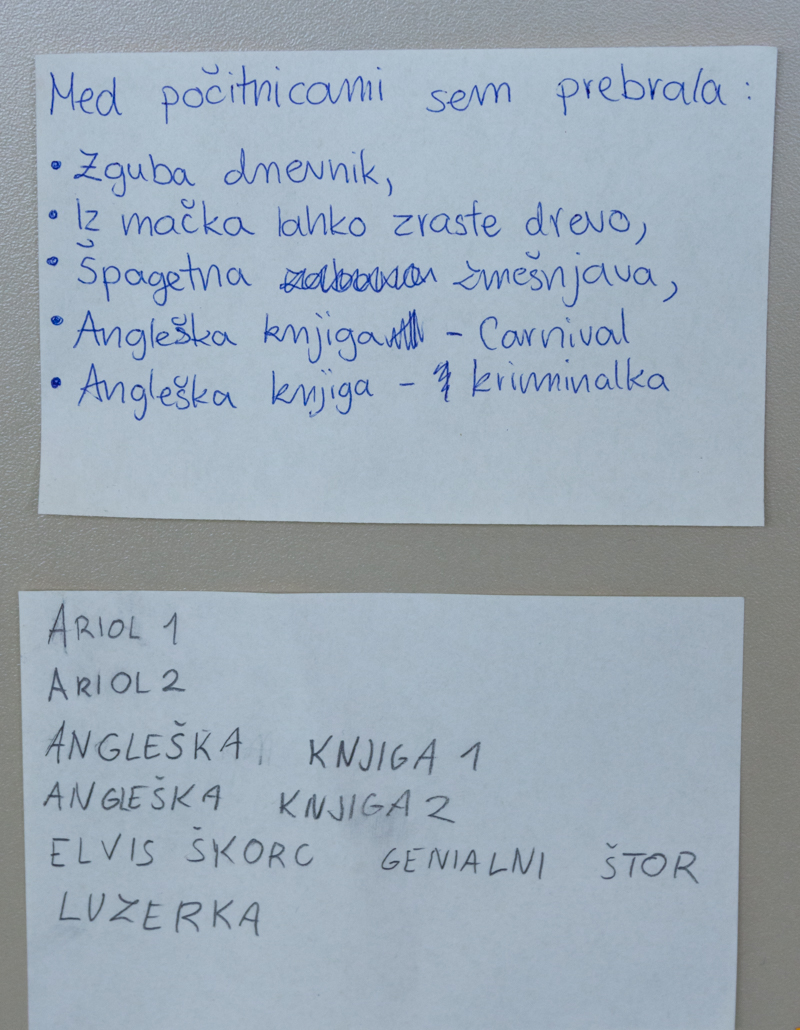 Med počitnicami sem prebrala:
• Zguba dnevnik,
• Iz mačka lahko zraste drevo,
• Špagetna zmešnjava,
• Angleška knjiga - Carnival
• Angleška knjiga - kriminalka
ARIOL 1
ARIOL 2
ANGLEŠKA KNJIGA 1
ANGLEŠKA KNJIGA 2
ELVIS ŠKORC GENIALNI ŠTOR
LUZERKA